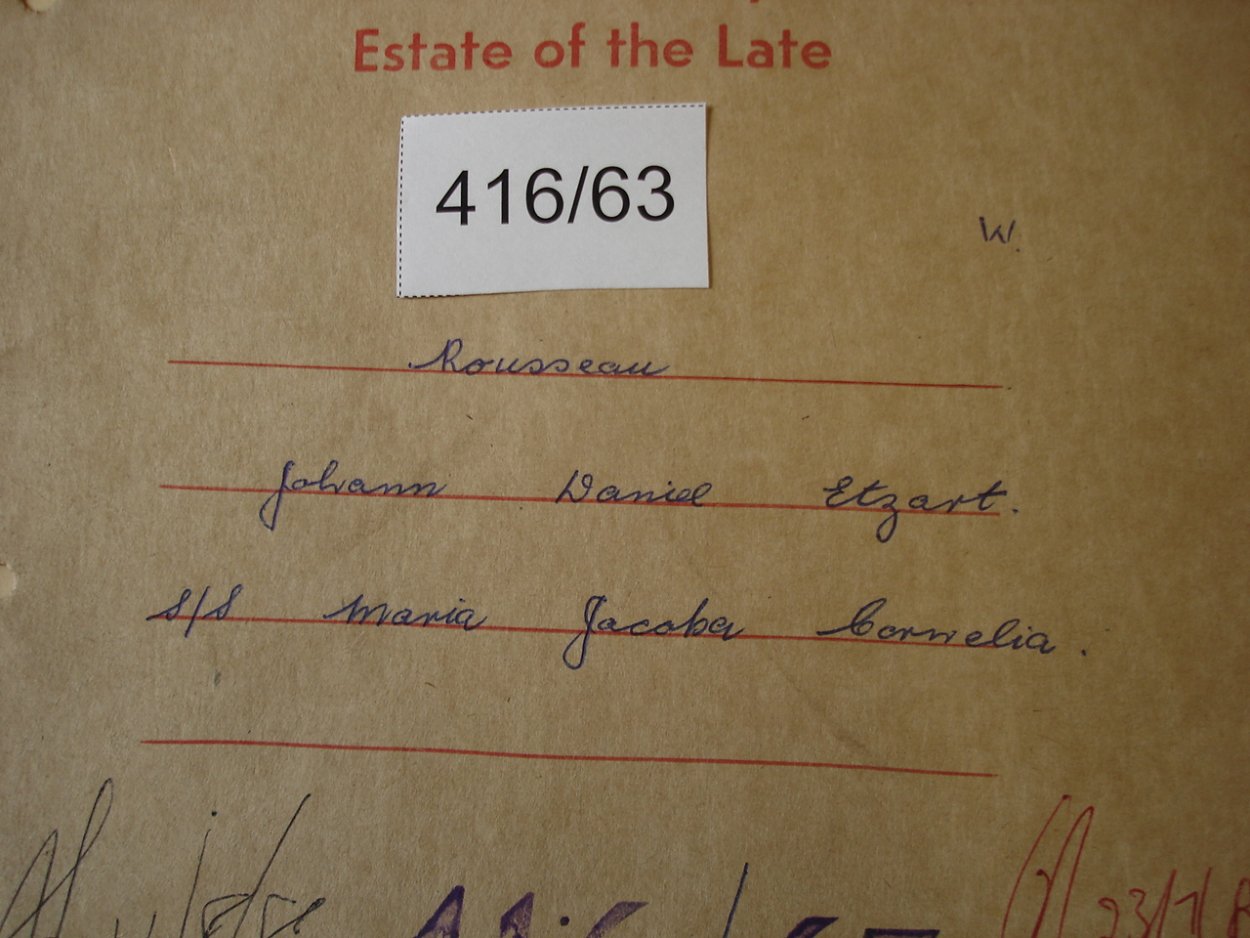 Estate of the Late
416/63
W.
Rousseau
Johann Daniel Etzart.
S/S Maria Jacoba Cornelia.
23/1/